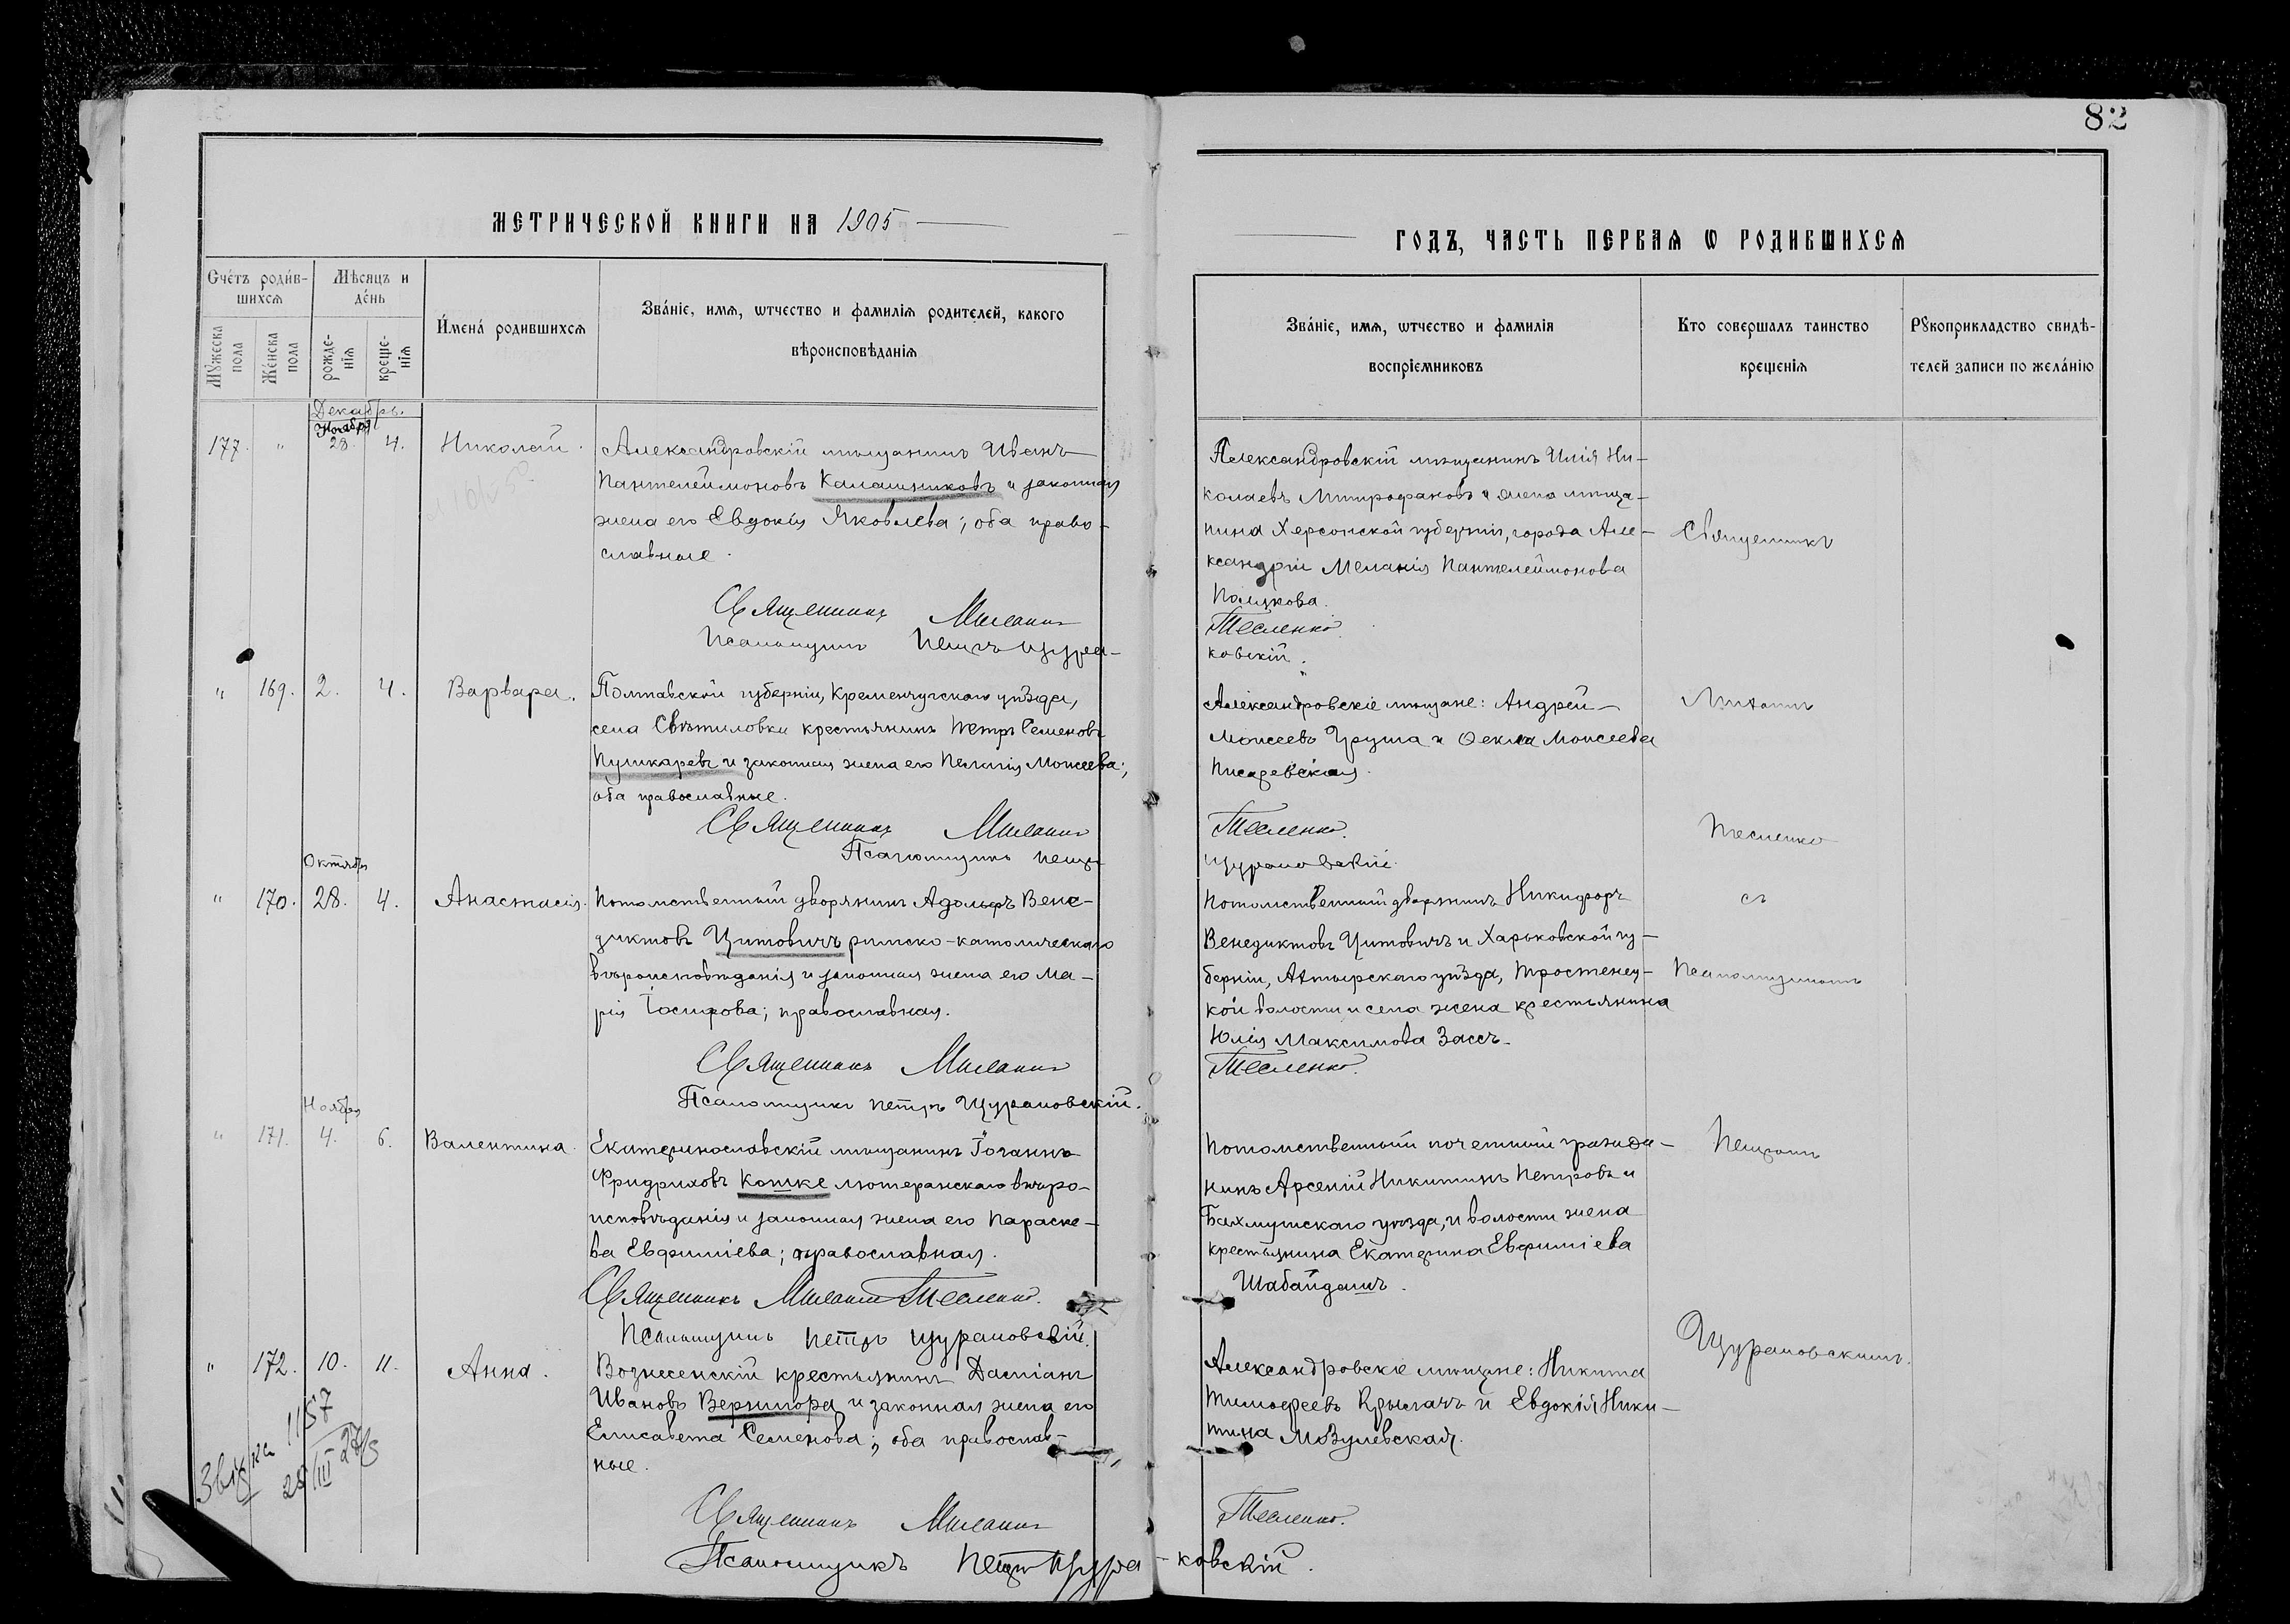 82
МЕТРИЧЕСКОЙ КНИГИ НА 1905
ГОДЪ, ЧАСТЬ ПЕРВАѦ Ѡ РОДИВШИХСѦ
Счétъ родив-
шихсѧ
Мѣсяцъ и
день
Имена родившихсѧ
Званіе, имѧ, ѡтчество и фамиліѧ родителей, какого
вѣроисповѣданіѧ
Мꙋжеска пола
Женска пола
рожде-
ніѧ
креще-
ніѧ
Званіе, имѧ, ѡтчество и фамиліѧ
воспріемниковъ
Кто совершалъ таинство
крещеніѧ
Рꙋкоприкладство свидѣ-
телей записи по желанію
Декабрь.
Ноября
177. " 28. 4. Николай.
Александровскій мѣщанинъ Иванъ
Пантелеймоновъ Калашниковъ и законная
жена его Евдокія Яковлева; оба право-
славные.
Священникъ Михаилъ
Псаломщикъ Петръ Цура-
Александровскій мѣщанинъ Илія Ни-
колаевъ Митрофановъ и жена мѣща-
нина Херсонской губерніи, города Але-
ксандріи Меланія Пантелеймонова
Полякова.
Тесленко.
ковскій.
Священникъ
" 169. 2. 4. Варвара.
Полтавской губерніи, Кременчугскаго уѣзда,
села Свѣтиловки крестьянинъ Петръ Семеновъ
Пушкаревъ и законная жена его Пелагія Моисеева;
оба православные.
Священникъ Михаилъ
Псаломщикъ Петръ
Александровскіе мѣщане: Андрей
Моисеевъ Груша и Ѳекла Моисеева
Писаревская.
Тесленко.
Цураковскій.
Михаилъ
Тесленко
Октября
" 170. 28. 4. Анастасія.
Потомственный дворянинъ Адольфъ Вене-
диктовъ Цитовичъ римско-католическаго
вѣроисповѣданія и законная жена его Ма-
рія Іосифова; православная.
Священникъ Михаилъ
Псаломщикъ Петръ Цураковскій.
Потомственный дворянинъ Никифоръ
Венедиктовъ Цитовичъ и Харьковской гу-
берніи, Ахтырскаго уѣзда, Тростенец-
кой волости и села жена крестьянина
Юлія Максимова Зассъ.
Тесленко.
съ
Псаломщикомъ
Ноября
" 171. 4. 6. Валентина.
Екатеринославскій мѣщанинъ Іоганнъ
Фридриховъ Кошке лютеранскаго вѣро-
исповѣданія и законная жена его Параске-
ва Евфиміева; православная.
Священникъ Михаилъ Тесленко.
Псаломщикъ Петръ Цураковскій.
Потомственный почетный гражда-
нинъ Арсеній Никитинъ Петровъ и
Бахмутскаго уѣзда, и волости жена
крестьянина Екатерина Евфиміева
Шабайдашъ.
Петромъ
Цураковскимъ.
" 172. 10. 11. Анна.
Вознесенскій крестьянинъ Даміанъ
Ивановъ Вернигора и законная жена его
Елисавета Семенова; оба православ-
ные.
Священникъ Михаилъ
Псаломщикъ Петръ Цура-
Александровскіе мѣщане: Никита
Тимоѳеевъ Крыгачъ и Евдокія Ники-
тина Мозулевская.
Тесленко.
ковскій.
1157
28/III 27